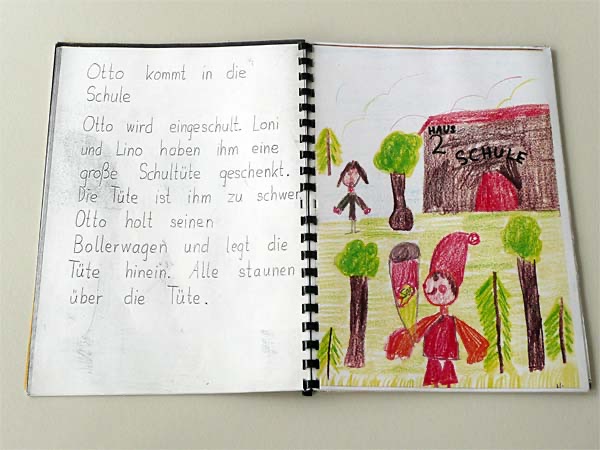 Otto kommt in die
Schule
Otto wird eingeschult. Loni
und Lino haben ihm eine
große Schultüte geschenkt.
Die Tüte ist ihm zu schwer
Otto holt seinen
Bollerwagen und legt die
Tüte hinein. Alle staunen
über die Tüte.
HAUS
2
SCHULE